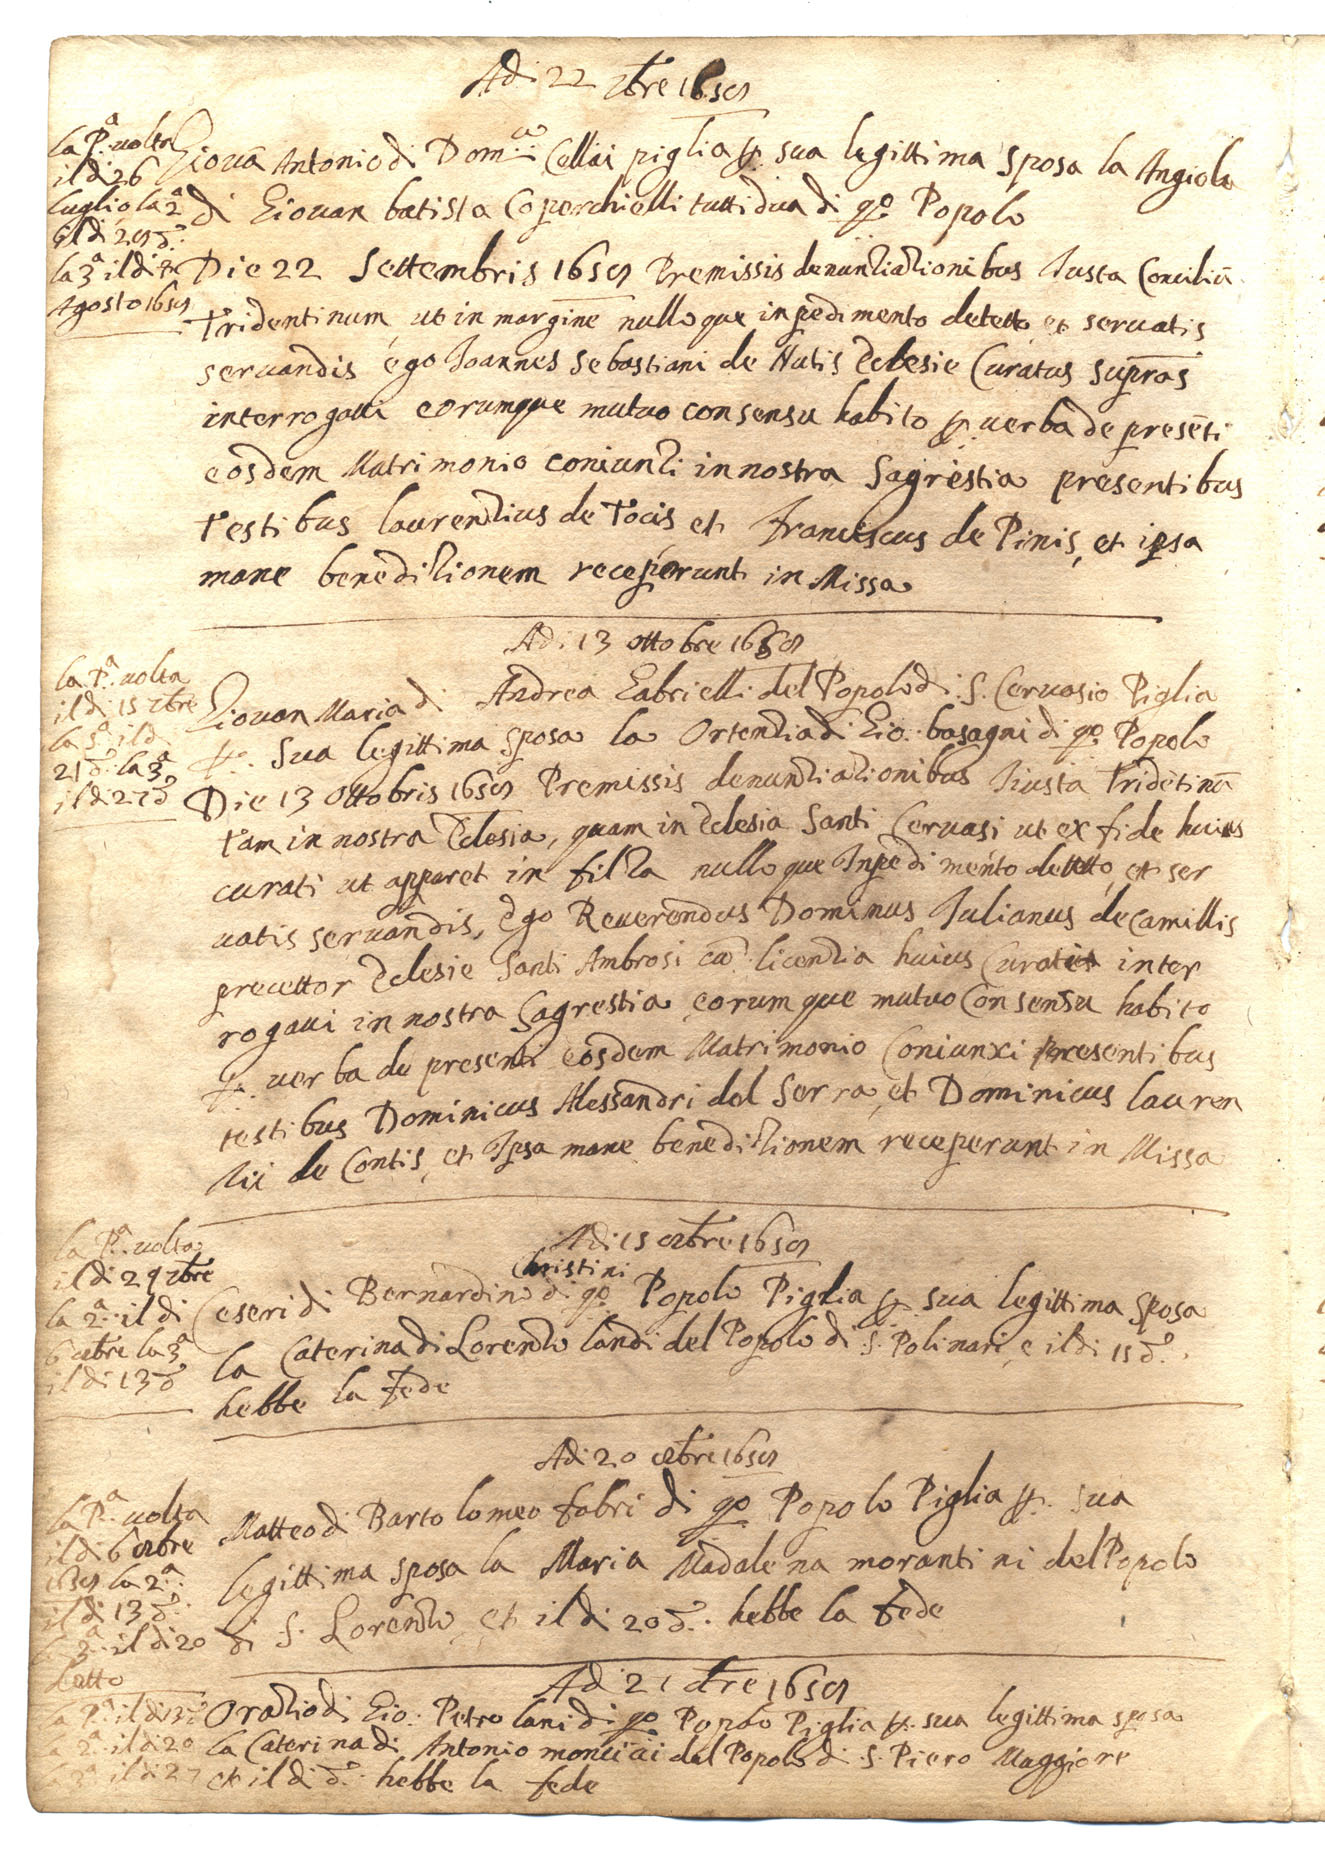 Adi 22 7bre 1659
la Pª. volta
il di 26
luglio la 2ª
il di 29 dº.
la 3ª il di
Agosto 1659
Giovã Antonio di Domco. Cellai piglia p. sua legittima sposa la Angiola
di Giovan batista Coperchielli tutti dua di qo. Popolo
Die 22 Settembris 1659 Premissis denuntiationibus Iusta Conciliũ
Tridentinum, ut in margine nulloque inpedimento detetto et servatis
servandis ego Ioannes Sebastiani de Nutis Eclesie Curatus supras
interrogavi eorumque mutuo consensu habito p. verba de presẽti
eosdem Matrimonio coniunti in nostra Sagrestia presentibus
testibus laurentius de Tocis et Franciscus de Pinis, et ipsa
mane beneditionem receperunt in Missa
Adi 13 ottobre 1659
la Pª. volta
il di 15 7bre
la 2ª il di
21 dº. la 3ª
il di 27 dº
Giovan Maria di Andrea Gabrielli del Popolo di S. Cervasio Piglia
p. sua legittima sposa la Ortentia di Gio. basagni di qo. Popolo
Die 13 Ottobris 1659 Premissis denuntiationibus Iiusta Tridẽtinũ
tam in nostra Eclesia, quam in Eclesia Santi Cervasi ut ex fide huius
curati ut apparet in filza nulloque Inpedimento detetto, et ser
vatis servandis, Ego Reverendus Dominus Iulianus de Camillis
precettor Eclesie Santi Ambrosi cũ licentia huius Curatis inter
rogavi in nostra Sagrestia eorumque mutuo Consensu habito
p. verba de presenti eosdem Matrimonio Coniunxi presentibus
testibus Dominicus Alessandri del Serra, et Dominicus lauren
tii de Contis, et Ipsa mane beneditionem receperunt in Missa
Adi 15 8bre 1659
la Pª. volta
il di 29 7bre
la 2ª. il di
6 8bre la 3ª
il di 13 dº
Christini
Ceseri di Bernardino di qo. Popolo Piglia p. sua legittima sposa
la Caterina di Lorenzo landi del Popolo di S. Polinari, e il di 15 dº.
hebbe la Fede
Adi 20 8bre 1659
la Pª. volta
il di 6 8bre
1659 la 2ª.
il di 13 dº.
3ª. il di 20
detto
Matteo di Bartolomeo Fabri di qo Popolo Piglia p. sua
legittima sposa la Maria Madalena morantini del Popolo
di S. Lorenzo, et il di 20 dº. hebbe la Fede
Adi 21 8bre 1659
la Pª. il di 13 dº
la 2ª. il di 20
la 3ª. il di 27
Oratio di Gio: Petro lani di qo Popolo Piglia p. sua legittima sposa
la Caterina di Antonio del Popolo di S. Piero Maggiore
et il di dº. hebbe la fede